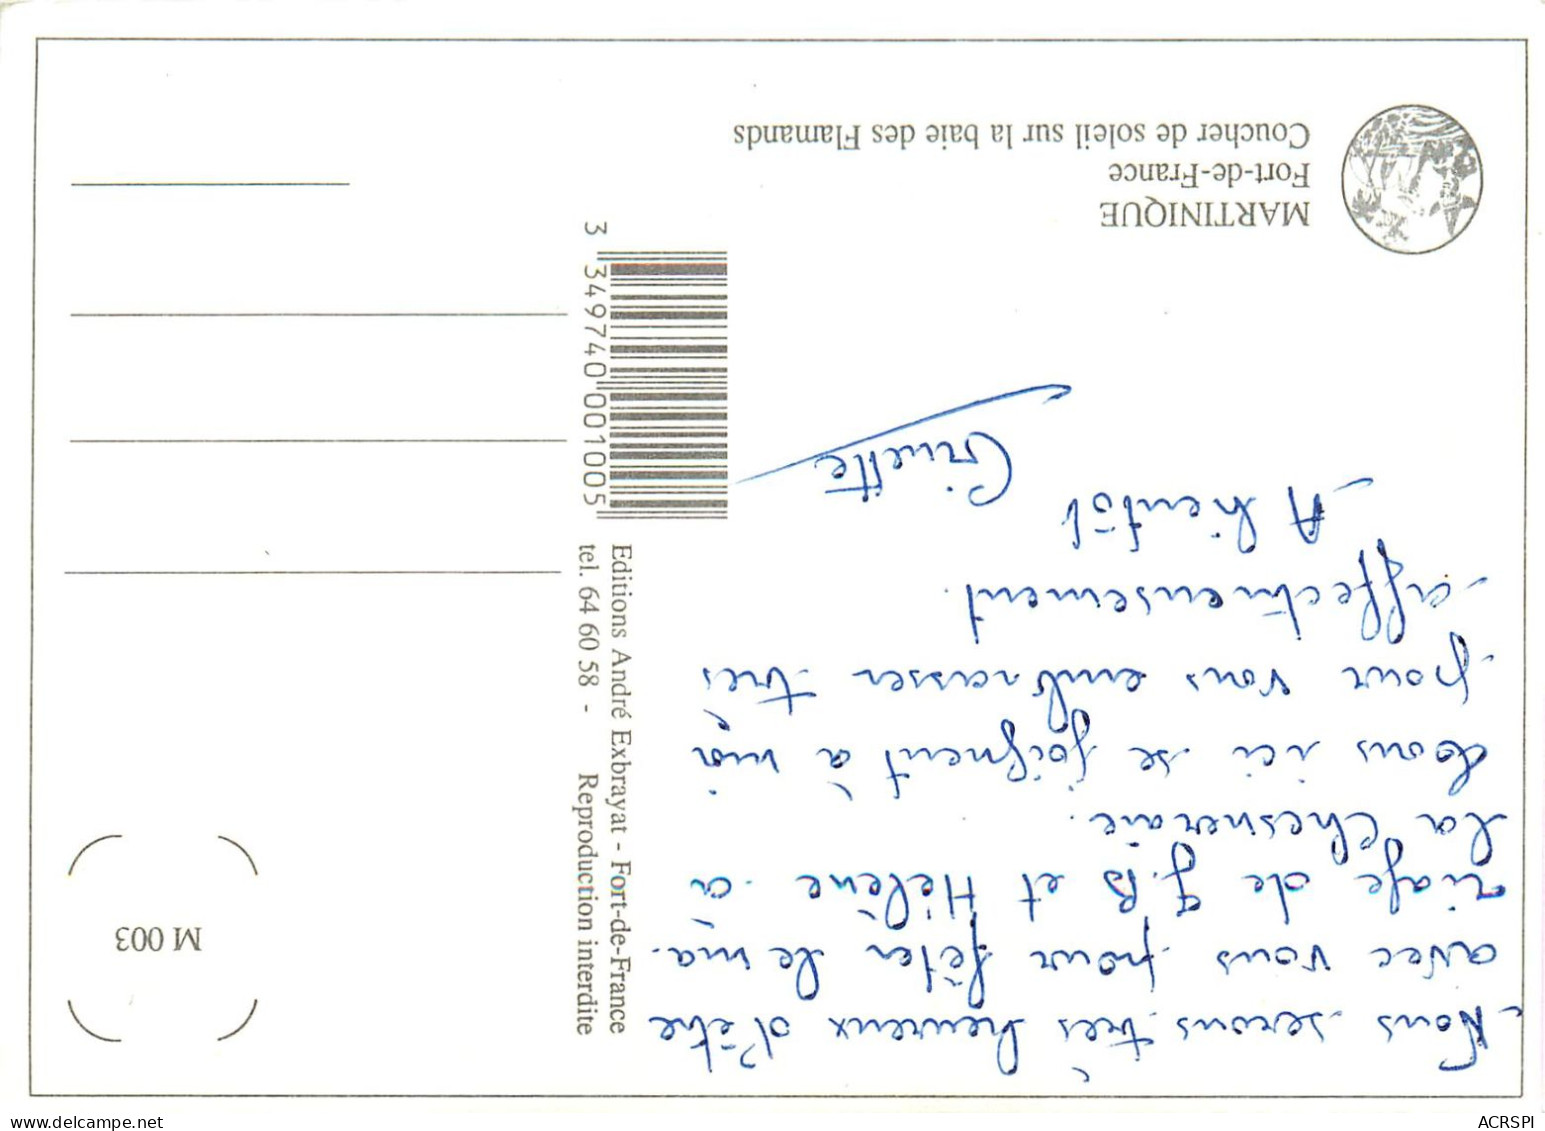 Nous serons très heureux d'être
avec vous pour fêter le ma-
riage de J.B et Hélène à
La Chesneraie.
Tous ici se joignent à moi
pour vous embrasser très
affectueusement.
A bientôt
Ginette
MARTINIQUE
Fort-de-France
Coucher de soleil sur la baie des Flamands
Editions André Exbrayat - Fort-de-France
tel. 64 60 58 - Reproduction interdite
3 349740 001005
M 003
delcampe.net
ACRSPI